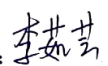 :李茹芸